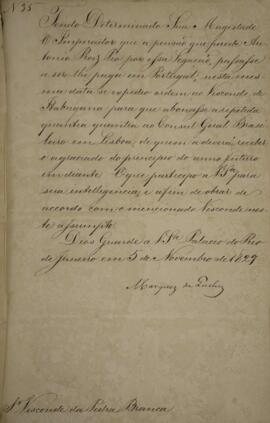 Nº 35
Tendo Determinado Sua Magestade
O Imperador que a pensão que percebe An-
tonio por essa Legação, passasse
a ser lhe paga em Portugal, nesta mes-
ma data se expedio ordem ao Visconde de
Itabayana para que abonasse a
quantia ao Consul Geral Brasi-
leiro em Lisboa, de quem a deverá receber
o agraciado do principio do anno futuro
em diante. O que participo a VSª para
sua intelligencia, e afim de obrar de
accordo com o mencionado Visconde nes-
te assumpto.
Deos Guarde a VSª Palacio do Rio
de Janeiro em 5 de Novembro de 1827
Marquez de Queluz
Sr. Visconde da Pedra Branca